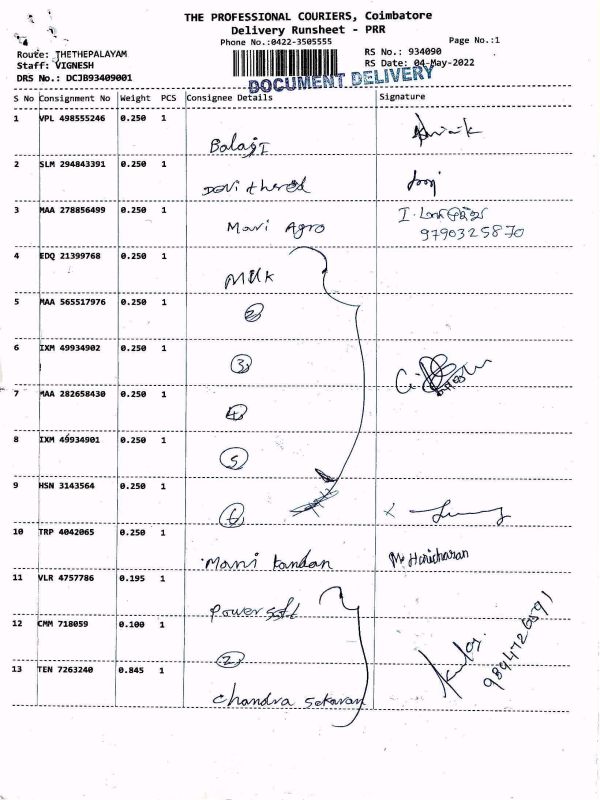 THE PROFESSIONAL COURIERS, Coimbatore
Delivery Runsheet - PRR
Phone No.:0422-3505555
Page No.:1
Route: THETHEPALAYAM
RS No.: 934090
Staff: VIGNESH
RS Date: 04-May-2022
DRS No.: DCJB93409001
DOCUMENT DELIVERY
S No Consignment No Weight PCS Consignee Details Signature
1 VPL 498555246 0.250 1
Balaji
2 SLM 294843391 0.250 1
3 MAA 278856499 0.250 1
Mari Agro
9790325870
4 EDQ 21399768 0.250 1
Milk
5 MAA 565517976 0.250 1
2
6 IXM 49934902 0.250 1
3
7 MAA 282658430 0.250 1
4
8 IXM 49934901 0.250 1
5
9 HSN 3143564 0.250 1
6
10 TRP 4042065 0.250 1
Mani kandan Mr Haricharan
11 VLR 4757786 0.195 1
Power soft
12 CMM 718059 0.100 1
2
13 TEN 7263240 0.845 1
Chandra Sekaran